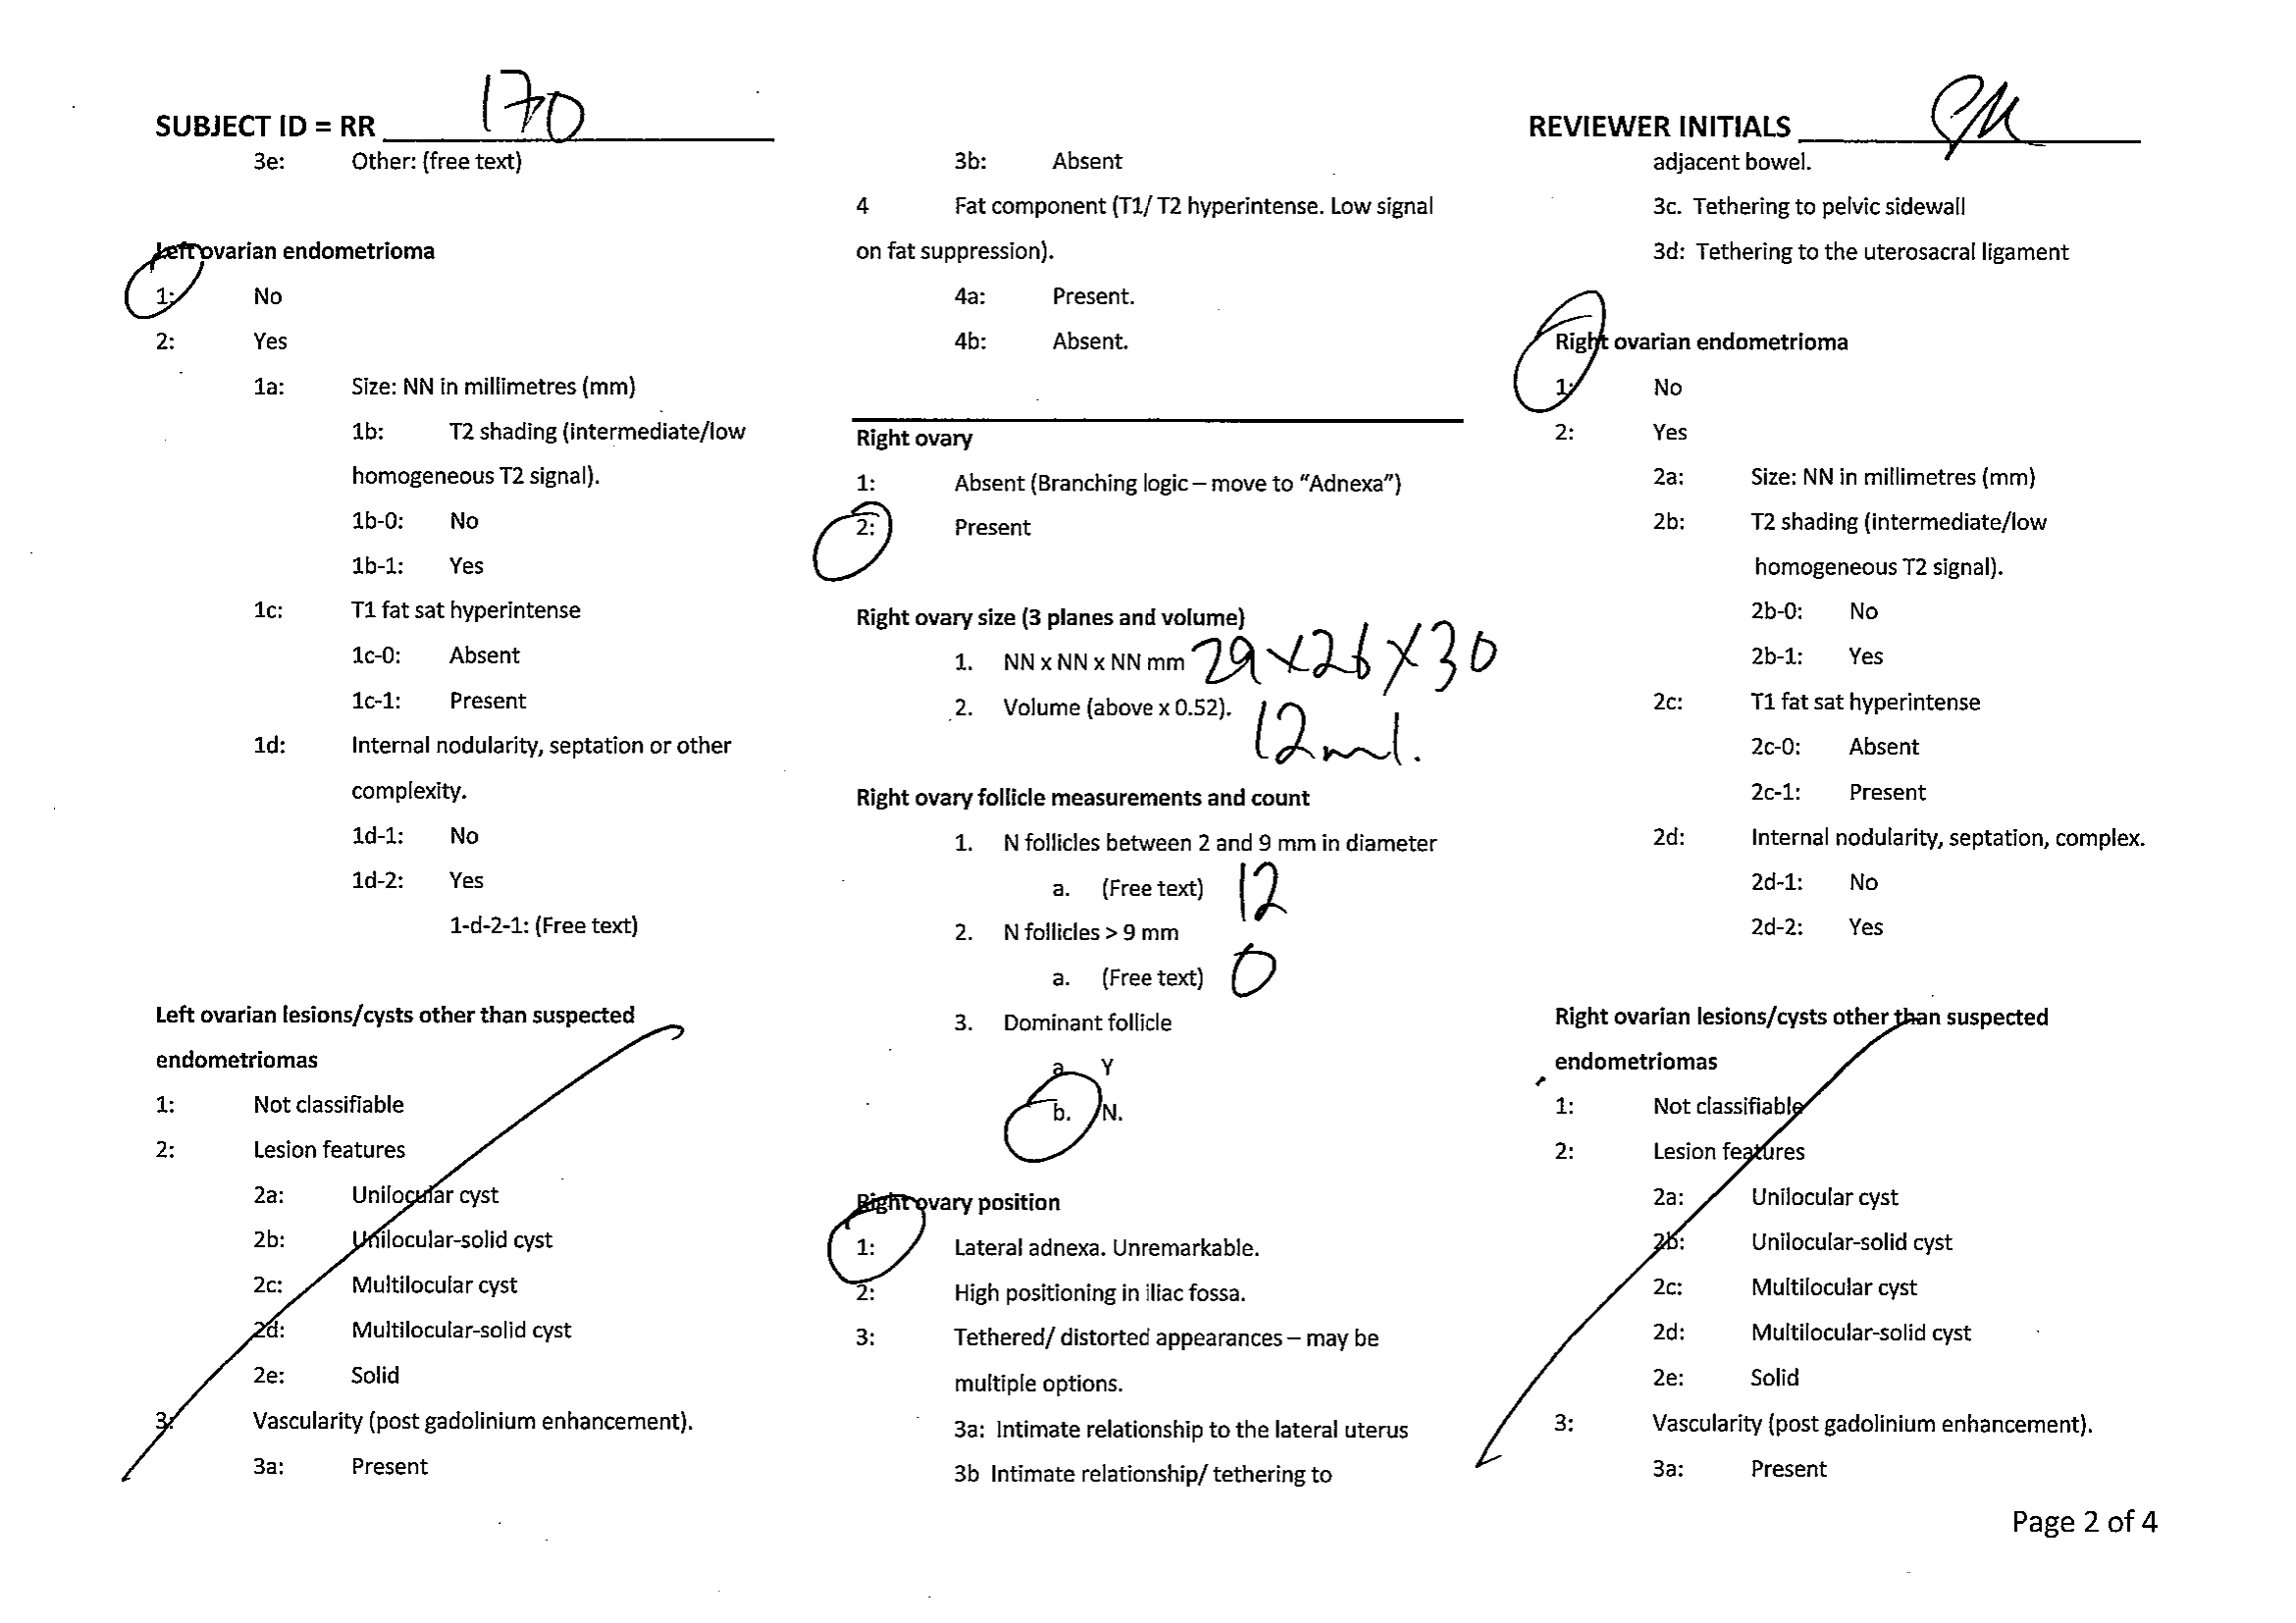 SUBJECT ID = RR 170
3e: Other: (free text)
Left ovarian endometrioma
1: No
2: Yes
1a: Size: NN in millimetres (mm)
1b: T2 shading (intermediate/low
homogeneous T2 signal).
1b-0: No
1b-1: Yes
1c: T1 fat sat hyperintense
1c-0: Absent
1c-1: Present
1d: Internal nodularity, septation or other
complexity.
1d-1: No
1d-2: Yes
1-d-2-1: (Free text)
Left ovarian lesions/cysts other than suspected
endometriomas
1: Not classifiable
2: Lesion features
2a: Unilocular cyst
2b: Unilocular-solid cyst
2c: Multilocular cyst
2d: Multilocular-solid cyst
2e: Solid
3: Vascularity (post gadolinium enhancement).
3a: Present
3b: Absent
4 Fat component (T1/ T2 hyperintense. Low signal
on fat suppression).
4a: Present.
4b: Absent.
Right ovary
1: Absent (Branching logic – move to “Adnexa”)
2: Present
Right ovary size (3 planes and volume)
1. NN x NN x NN mm 29 x 26 x 30
2. Volume (above x 0.52). 12 ml.
Right ovary follicle measurements and count
1. N follicles between 2 and 9 mm in diameter
a. (Free text) 12
2. N follicles > 9 mm
a. (Free text) 0
3. Dominant follicle
a. Y
b. N.
Right ovary position
1: Lateral adnexa. Unremarkable.
2: High positioning in iliac fossa.
3: Tethered/ distorted appearances – may be
multiple options.
3a: Intimate relationship to the lateral uterus
3b Intimate relationship/ tethering to
REVIEWER INITIALS
adjacent bowel.
3c. Tethering to pelvic sidewall
3d: Tethering to the uterosacral ligament
Right ovarian endometrioma
1: No
2: Yes
2a: Size: NN in millimetres (mm)
2b: T2 shading (intermediate/low
homogeneous T2 signal).
2b-0: No
2b-1: Yes
2c: T1 fat sat hyperintense
2c-0: Absent
2c-1: Present
2d: Internal nodularity, septation, complex.
2d-1: No
2d-2: Yes
Right ovarian lesions/cysts other than suspected
endometriomas
1: Not classifiable
2: Lesion features
2a: Unilocular cyst
2b: Unilocular-solid cyst
2c: Multilocular cyst
2d: Multilocular-solid cyst
2e: Solid
3: Vascularity (post gadolinium enhancement).
3a: Present
Page 2 of 4